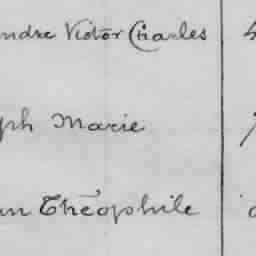 ndre Victor Charles
ph Marie
an Théophile